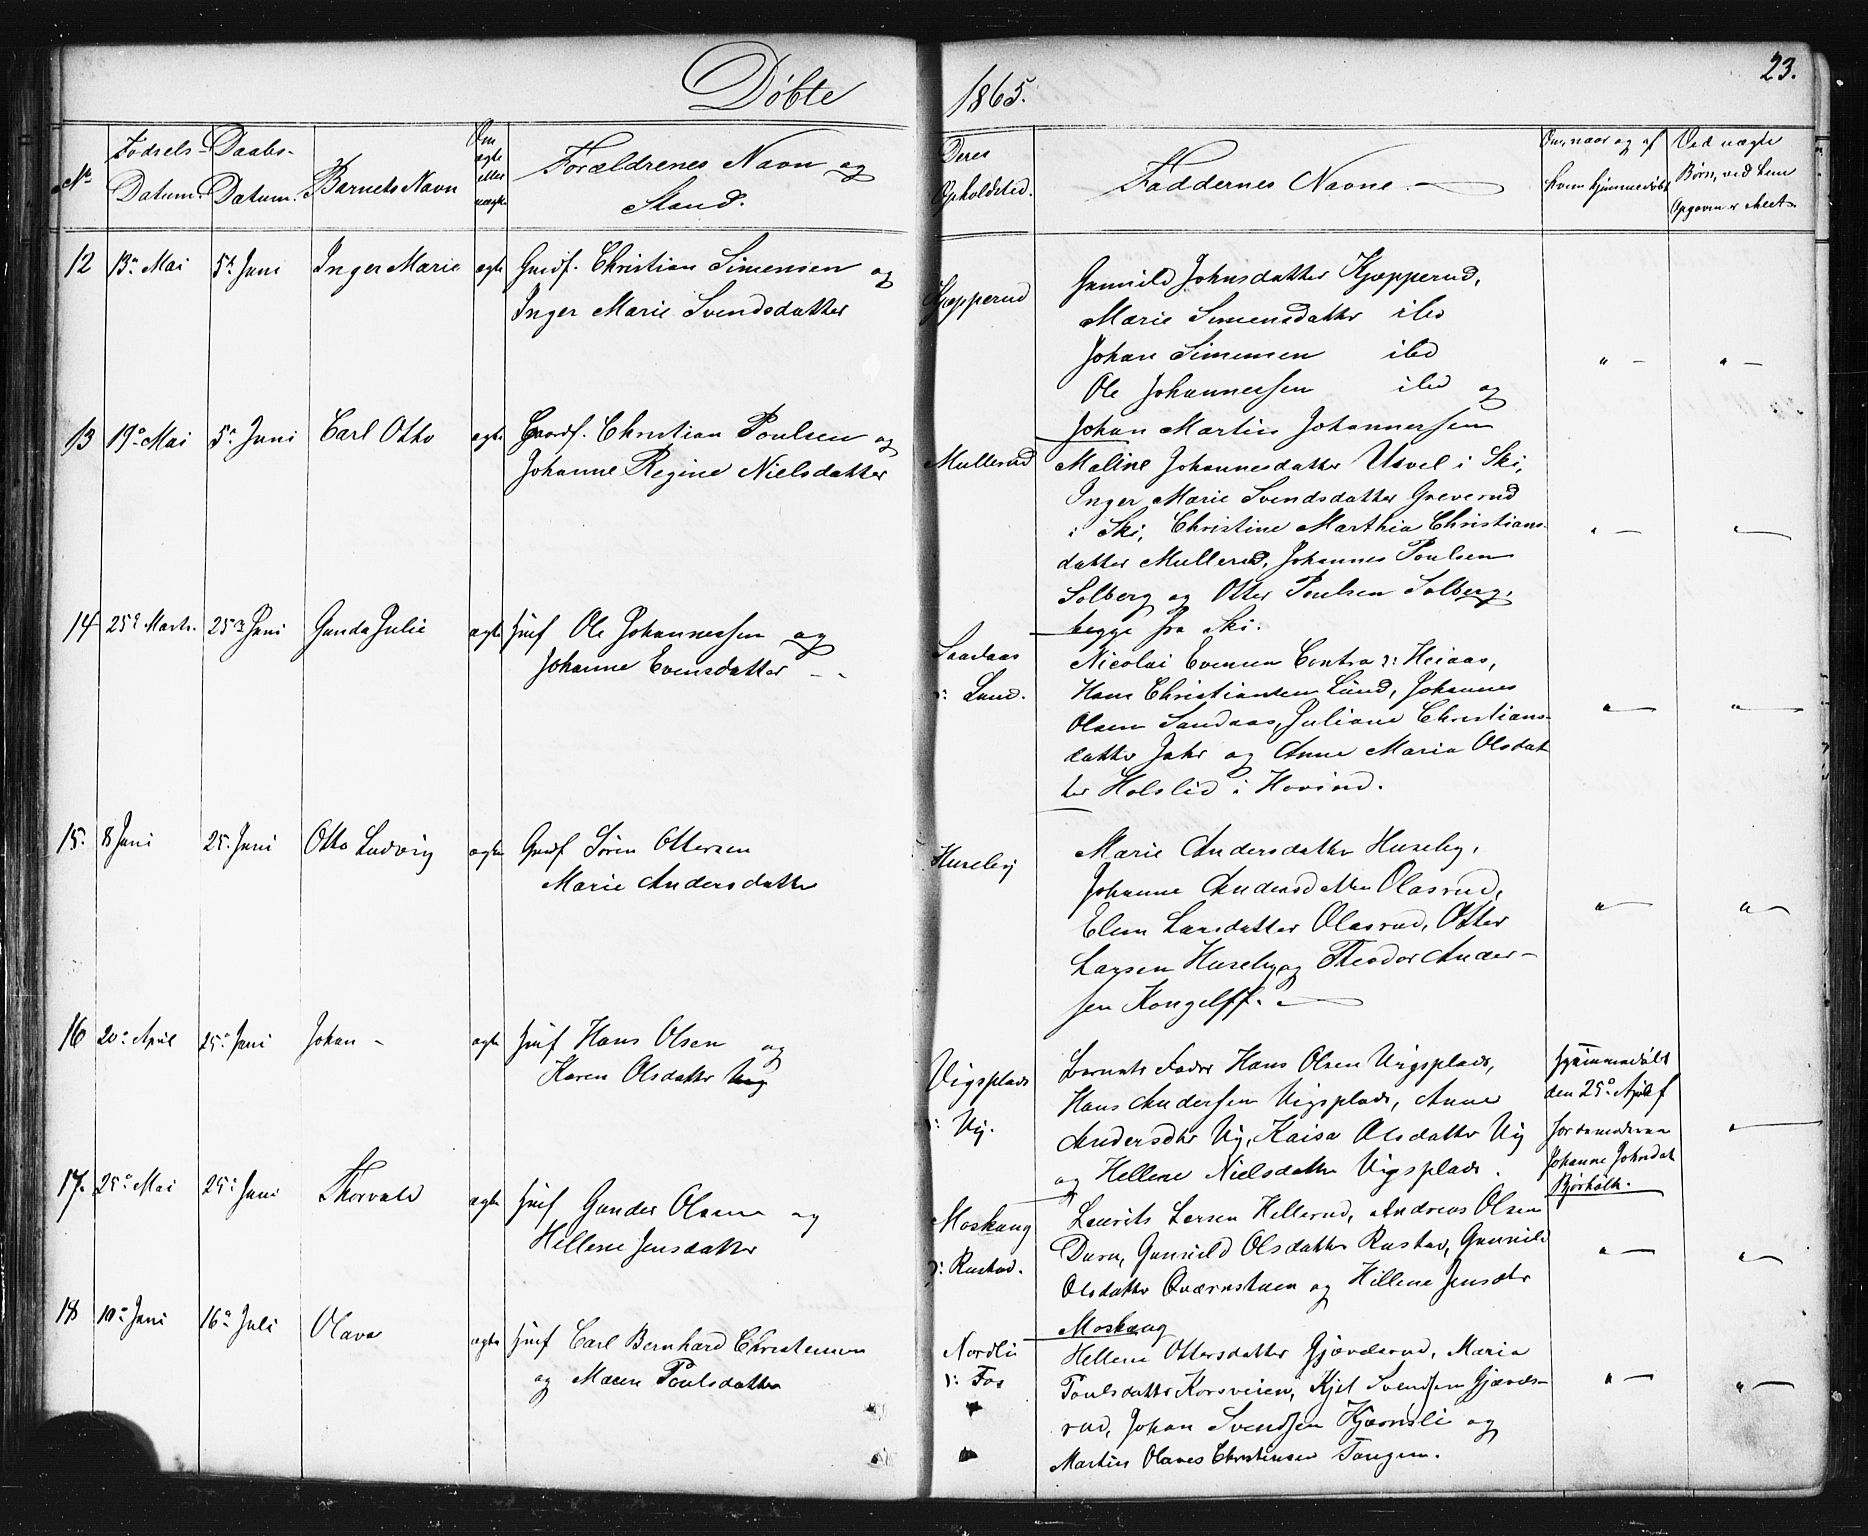 Døbte
1865.
23.
No
Fødsels-
Datum.
Daabs-
Datum.
Barnets Navn
Om
ægte
eller
uægte
Forældrenes Navn og
Stand.
Deres
Opholdsted.
Faddernes Navne.
Om, naar og af
hvem hjemmedøbt
Ved uægte
Børn, ved hem
Opgaven er skeet
12 13de Mai 5te Juni Inger Marie ægte Gmdf. Christian Simensen og
Inger Marie Svendsdatter
Kjepperud
Gunnild Johnsdatter Kjøpperud,
Marie Simensdatter ibd
Johan Simensen ibd
Ole Johannessen ibd og
Johan Martin Johannessen
13 19de Mai 5te Juni Carl Otto ægte Gaardf. Christian Poulsen og
Johanne Regine Nielsdatter
Mullerud
Maline Johannesdatter Usvel i Ski,
Inger Marie Svendsdatter Greverud
i Ski, Christine Marthia Christians-
datter Mullerud, Johannes Poulsen
Solberg og Otter Poulsen Solberg,
begge fra Ski.
14 25de Marts. 25de Juni Gunda Julie ægte Huf Ole Johannessen og
Johanne Evensdatter
Sandaas
ɔ: Lund.
Nicolai Evensen Contra ɔ: Heiaas,
Hans Christiansen Lund, Johannes
Olsen Sandaas, Juliane Christians-
datter Jahr og Anne Maria Olsdat
ter Holslid i Hovind.
15. 8 Juni 25. Juni Otto Ludvig ægte Gmdf Søren Ottersen
Marie Andersdatter
Huseby
Marie Andersdatter Huseby,
Johanne Andersdatter Olasrud,
Elen Larsdatter Olasrud, Otter
Larsen Huseby og Theodor Ander-
sen Kongelff.
16 20de April 25de Juni Johan ægte Huf Hans Olsen og
Karen Olsdatter
Vigsplads
ɔ: Vig.
Barnets Fader Hans Olsen Vigsplads,
Hans Andersen Vigsplads, Anne
Andersdtr Vig, Kaisa Olsdatter Vig
og Hellene Nielsdatter Vigsplads.
Hjemmedøbt
den 25de April af
Jordemoderen
Johanne Johnsdat
Bjørholt.
17. 25de Mai 25de Juni Thorvald ægte Huf Gunder Olsen og
Hellene Jensdatter
Moskaug
ɔ: Rustad.
Laurits Larsen Hellerud, Andreas Olsen
Duru, Gunnild Olsdatter Rustad, Gunnild
Olsdatter Qværnstuen og Hillene Jensdtr
Moskaug
18 10de Juni 16de Juli Olava ægte Huf Carl Bernhard Christensen
og Maren Poulsdatter
Nordli
ɔ: Fos
Hellene Ottersdatter Gjævelsrud, Maria
Poulsdatter Korsveien, Kjel Svendsen Gjævels-
rud, Johan Svendsen Kjærnsli og
Martin Olaves Christensen Tangen.